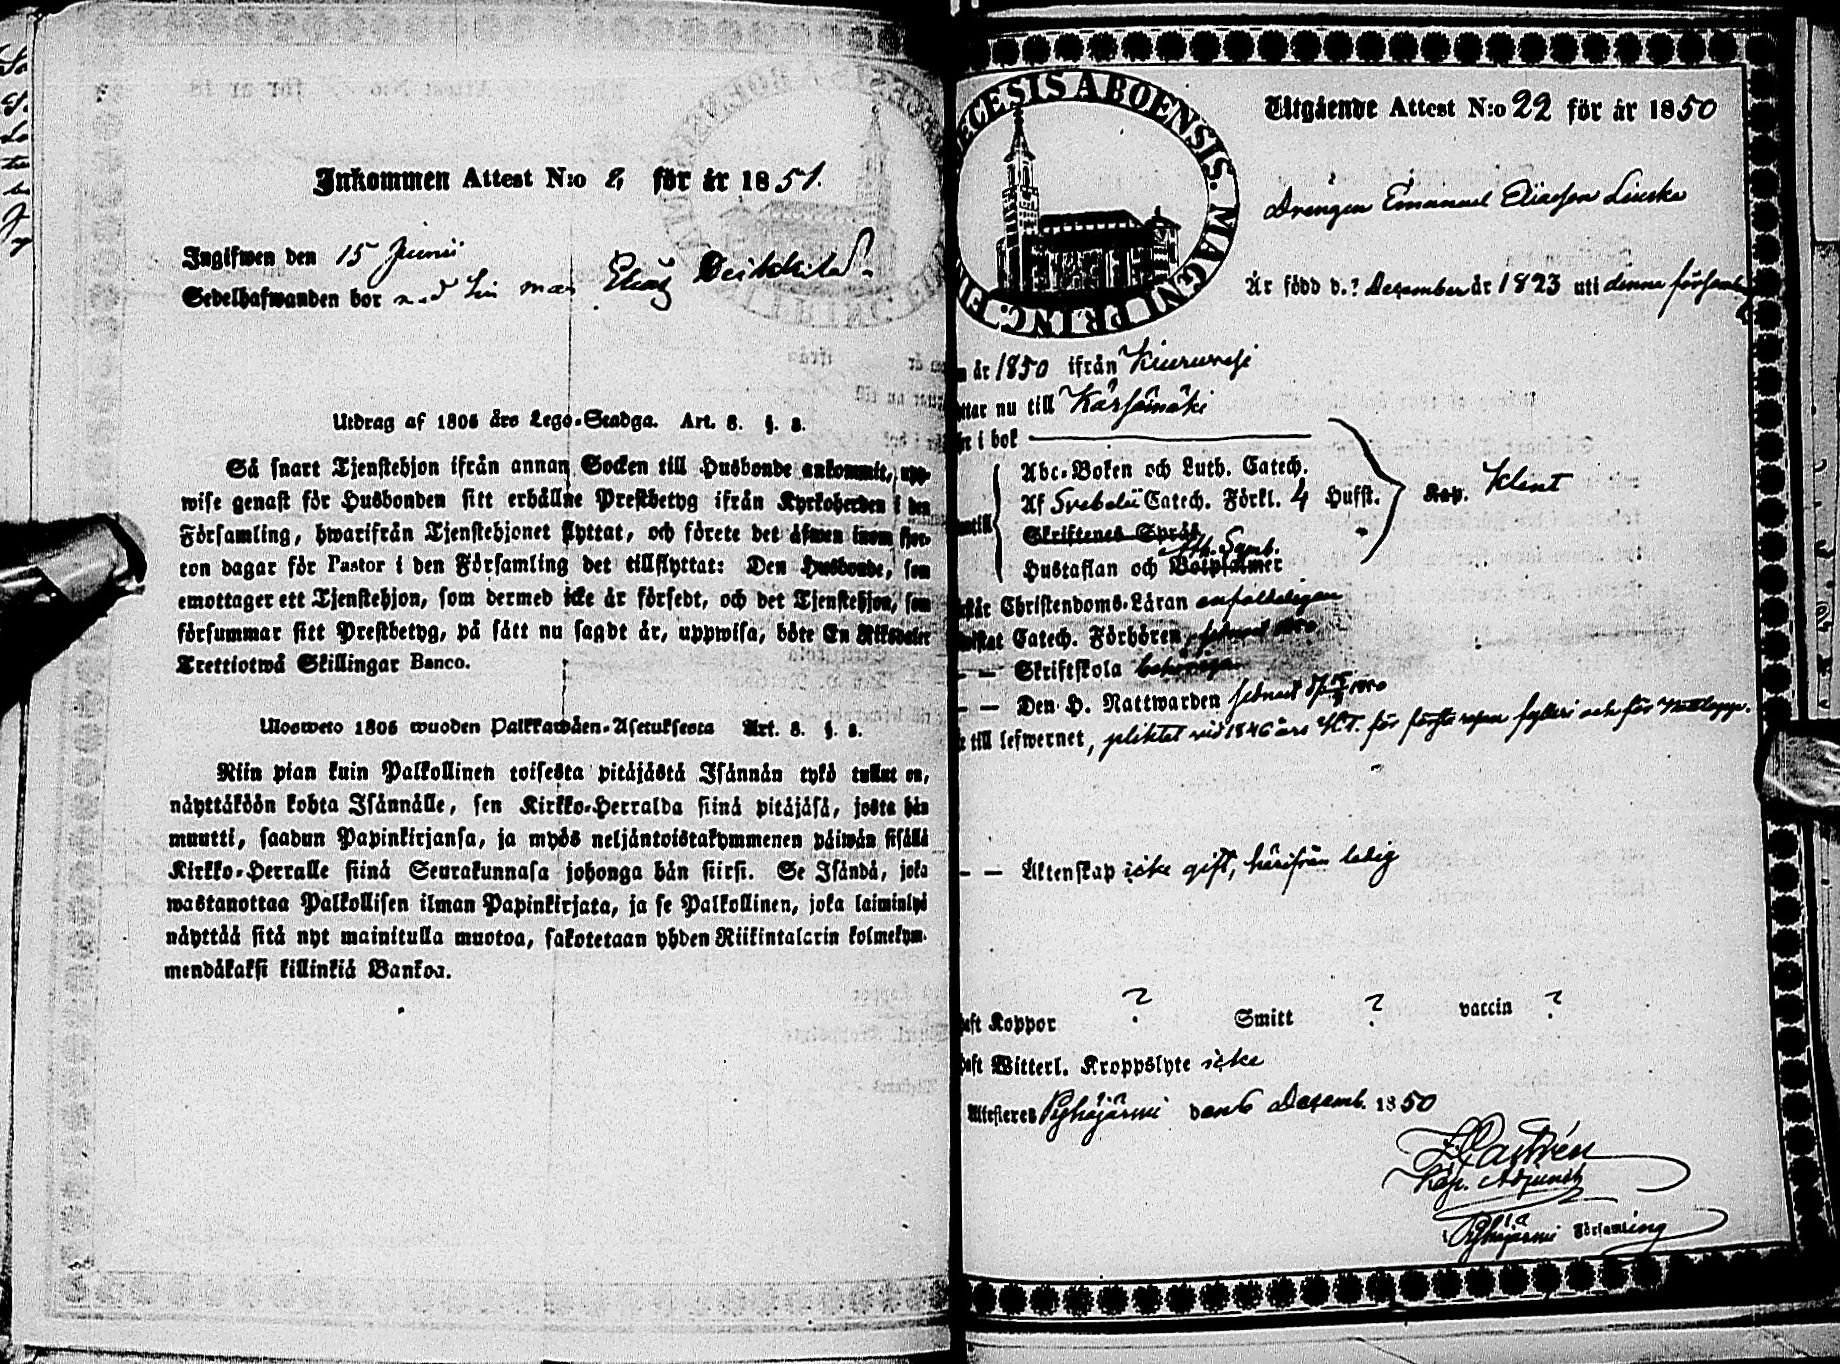 Inkommen Attest N:o 2, för år 1851.
Ingifwen den 15 Junii
Sedelhafwanden bor
Utdrag af 1805 års Lego-Stadga. Art. 8. §. 8.
Så snart Tjenstehjon ifrån annan Socken till Husbonde ankommit, upp-
wise genast för Husbonden sitt erhållne Prestbetyg ifrån Kyrkoherden i den
Församling, hwarifrån Tjenstehjonet flyttat, och förete det äfwen inom fjor-
ton dagar för Pastor i den Församling det tillflyttat: Den Husbonde, som
emottager ett Tjenstehjon, som dermed icke är försedt, och det Tjenstehjon, som
försummar sitt Prestbetyg, på sätt nu sagdt är, uppwisa, böte En Riksdaler
Trettiotwå Skillingar Banco.
Ulosweto 1805 wuoden Palkkawäen-Asetuksesta Art. 8. §. 8.
Niin pian kuin Palkollinen toisesta pitäjästä Isännän tykö tullut on,
näyttäköön kohta Isännälle, sen Kirkko-Herralda siinä pitäjäsä, josta hän
muutti, saadun Papinkirjansa, ja myös neljäntoistakymmenen päiwän sisällä
Kirkko-Herralle siinä Seurakunnasa johonga hän siirsi. Se Isändä, joka
wastanottaa Palkollisen ilman Papinkirjata, ja se Palkollinen, joka laiminlyö
näyttää sitä nyt mainitulla muotoa, sakotetaan yhden Riikintalarin kolmekym-
mendäkaksi killinkiä Bankoa.
ECESIS ABOENSIS. MAGNI PRINC. FIN
Utgående Attest N:o 22 för år 1850
Drängen Emanuel Eliasson Liuska
Är född d. ? December år 1823 uti denna församl
år 1850 ifrån Kiuruvesi
ttar nu till Kärsämäki
i bok
Abc-Boken och Luth. Catech.
Af Svebelii Catech. Förkl. 4 Hufst. Kap. Klent
Skriftenes Språk
Ath. Symb.
Hustaflan och Botpsalmer
står Christendoms-Läran enfaldeligen
wistat Catech. Förhören
— — Skriftskola behörigen
— — Den H. Nattwarden
till lefwernet, pliktat vid 1846 års H.T. för första resan fylleri och för
— — Äktenskap icke gift, härifrån ledig
aft Koppor ? Smitt ? vaccin ?
aft Witterl. Kroppslyte icke
Attesteres Pyhäjärvi den 6 Decemb. 1850
Castrén
Kap. Adjunct
i Pyhäjärvi Församling